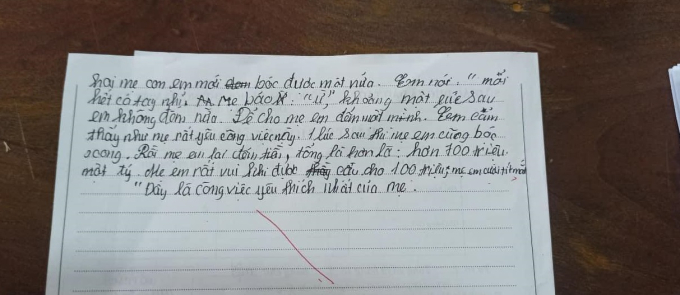 hai mẹ con em mới bóc được một nửa. Em nói: "mỏi
hết cả tay nhỉ. Mẹ bảo: "ừ," khoảng một lúc sau
em không đếm nữa. Để cho mẹ em đếm một mình. Em cảm
thấy như mẹ rất yêu công việc này. 1 lúc sau thì mẹ em cũng bóc
xong. Rồi mẹ em lại đếm tiền, tổng là hơn là: hơn 100 triệu
một tý. Mẹ em rất vui khi được cầu cho 100 triệu, mẹ em cười tít mắt
"Đây là công việc yêu thích nhất của mẹ.